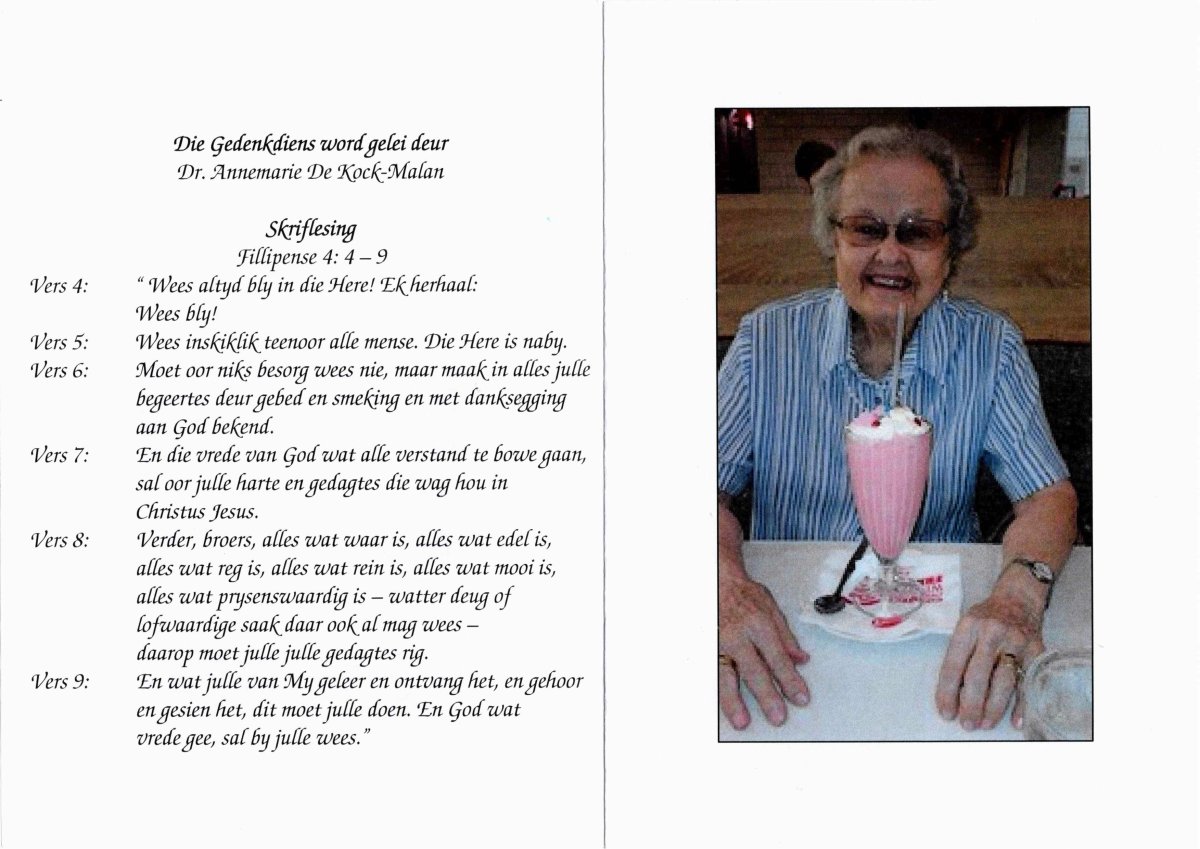 Die Gedenkdiens word gelei deur
Dr. Annemarie De Kock-Malan
Skriflesing
Fillipense 4: 4 – 9
Vers 4: “ Wees altyd bly in die Here! Ek herhaal:
Wees bly!
Vers 5: Wees inskiklik teenoor alle mense. Die Here is naby.
Vers 6: Moet oor niks besorg wees nie, maar maak in alles julle
begeertes deur gebed en smeking en met danksegging
aan God bekend.
Vers 7: En die vrede van God wat alle verstand te bowe gaan,
sal oor julle harte en gedagtes die wag hou in
Christus Jesus.
Vers 8: Verder, broers, alles wat waar is, alles wat edel is,
alles wat reg is, alles wat rein is, alles wat mooi is,
alles wat prysenswaardig is – watter deug of
lofwaardige saak daar ook al mag wees –
daarop moet julle julle gedagtes rig.
Vers 9: En wat julle van My geleer en ontvang het, en gehoor
en gesien het, dit moet julle doen. En God wat
vrede gee, sal by julle wees.”